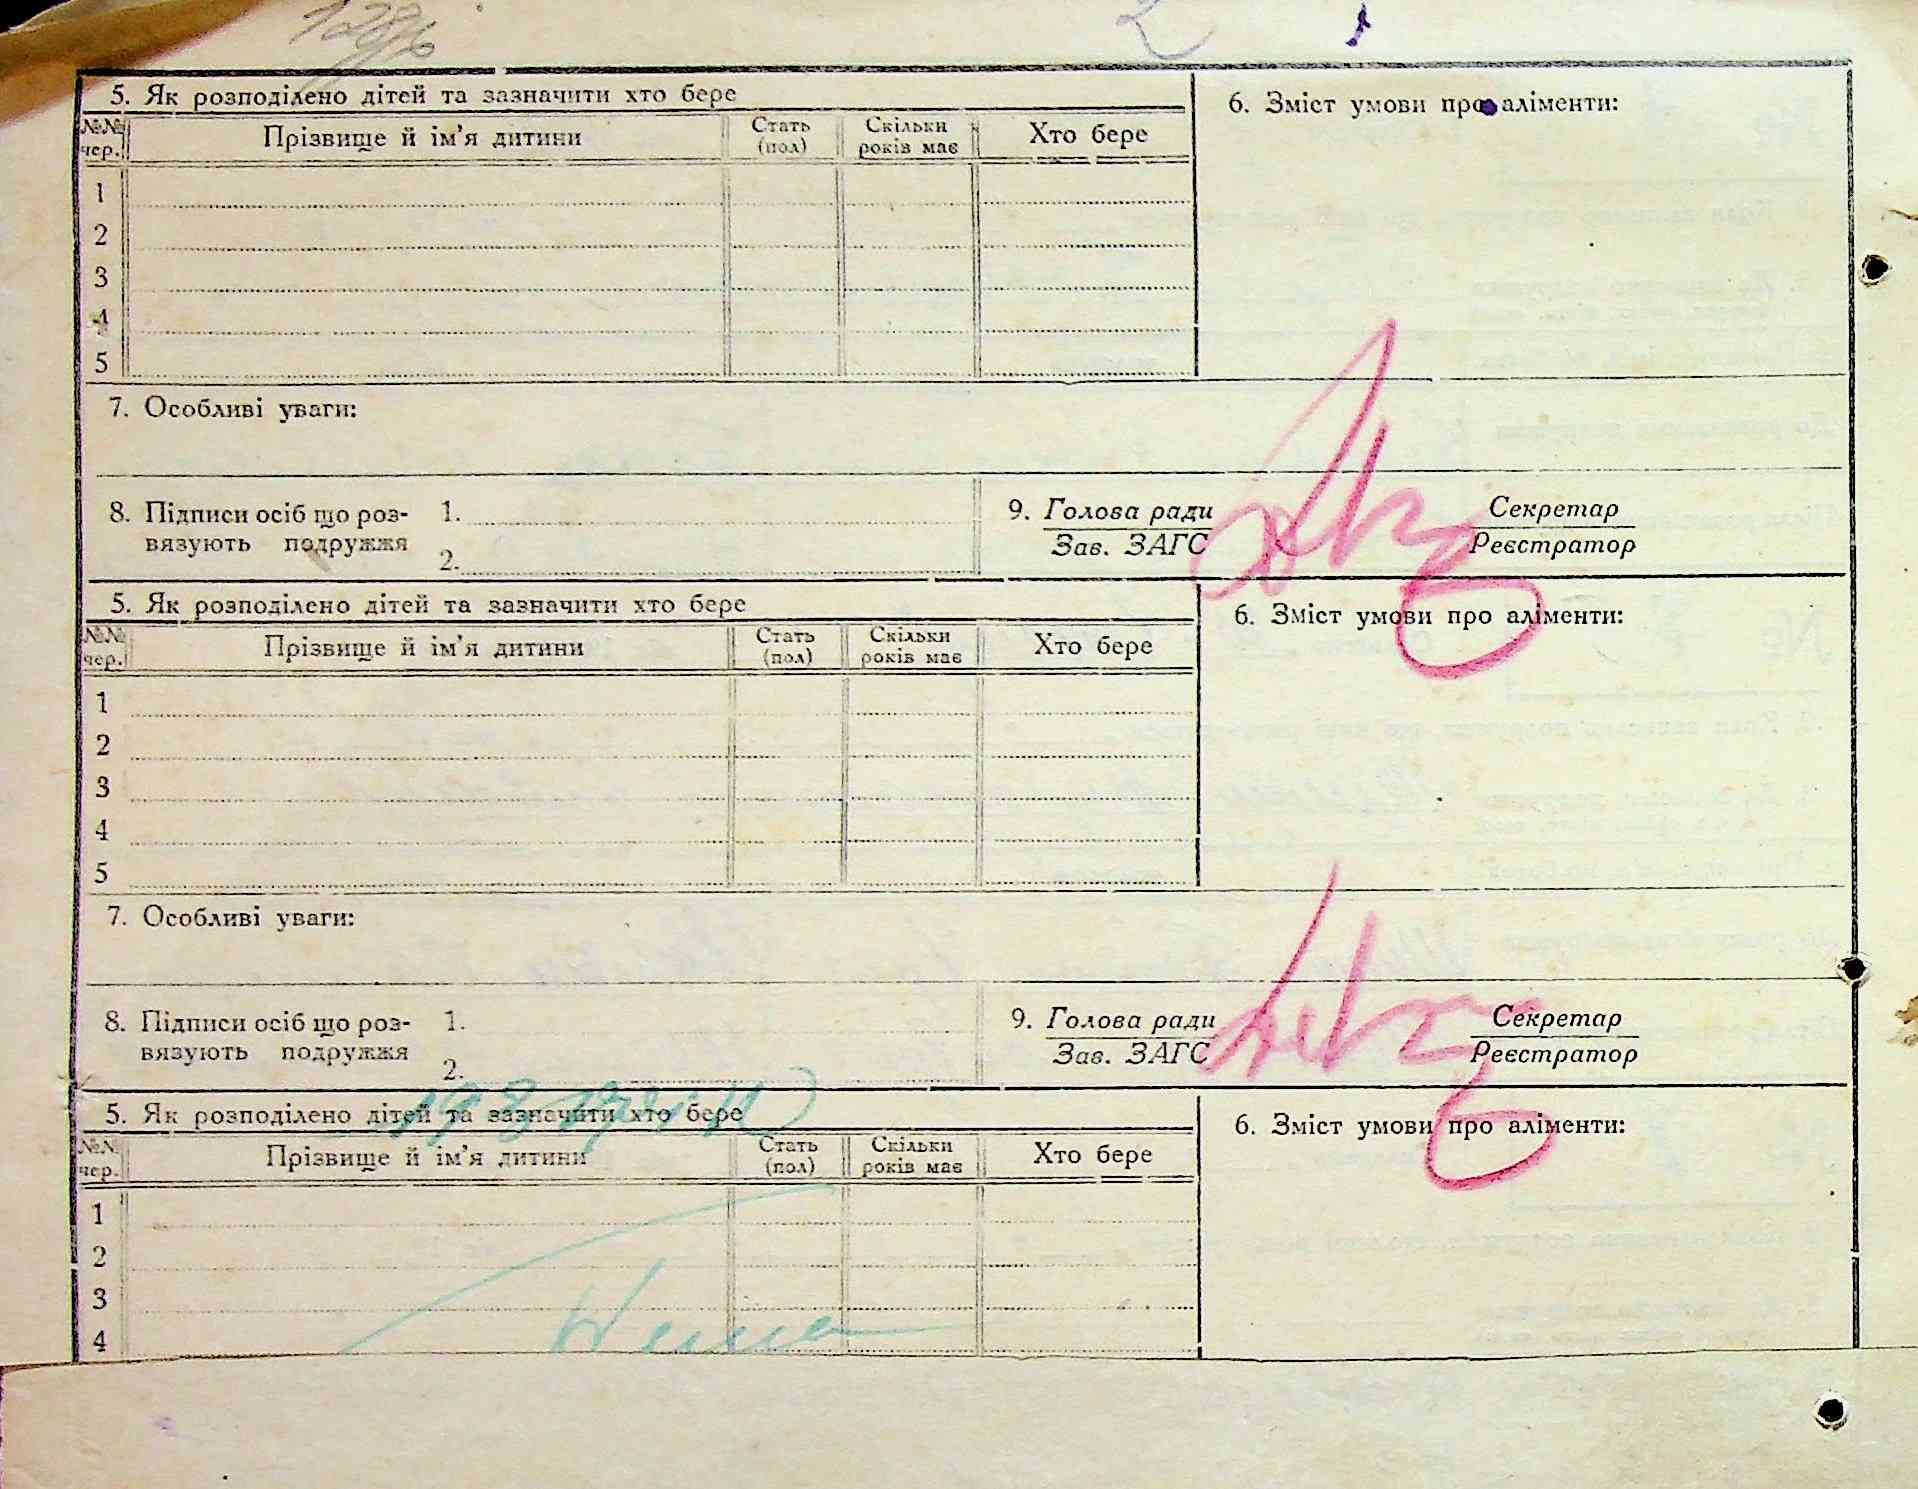 5. Як розподілено дітей та зазначити хто бере
6. Зміст умови про аліменти:
№№ чер. Прізвище й ім'я дитини Стать (пол) Скільки років має Хто бере
1
2
3
4
5
7. Особливі уваги:
8. Підписи осіб що роз- 1.
вязують подружжя
2.
9. Голова ради Секретар
Зав. ЗАГС Реєстратор
5. Як розподілено дітей та зазначити хто бере
6. Зміст умови про аліменти:
№№ чер. Прізвище й ім'я дитини Стать (пол) Скільки років має Хто бере
1
2
3
4
5
7. Особливі уваги:
8. Підписи осіб що роз- 1.
вязують подружжя
2.
9. Голова ради Секретар
Зав. ЗАГС Реєстратор
5. Як розподілено дітей та зазначити хто бере
6. Зміст умови про аліменти:
№№ чер. Прізвище й ім'я дитини Стать (пол) Скільки років має Хто бере
1
2
3
4